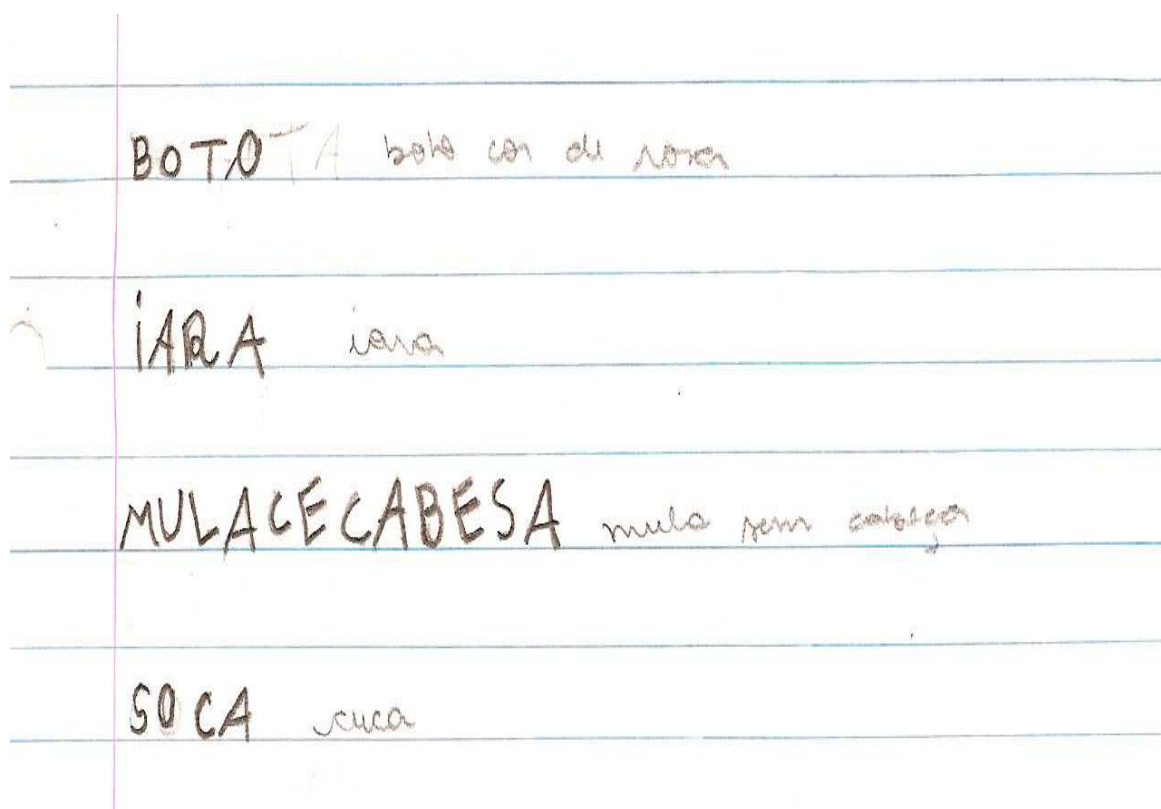 BOTOTA boto cor de rosa
iARA iara
MULACECABESA mula sem cabeça
SOCA cuca